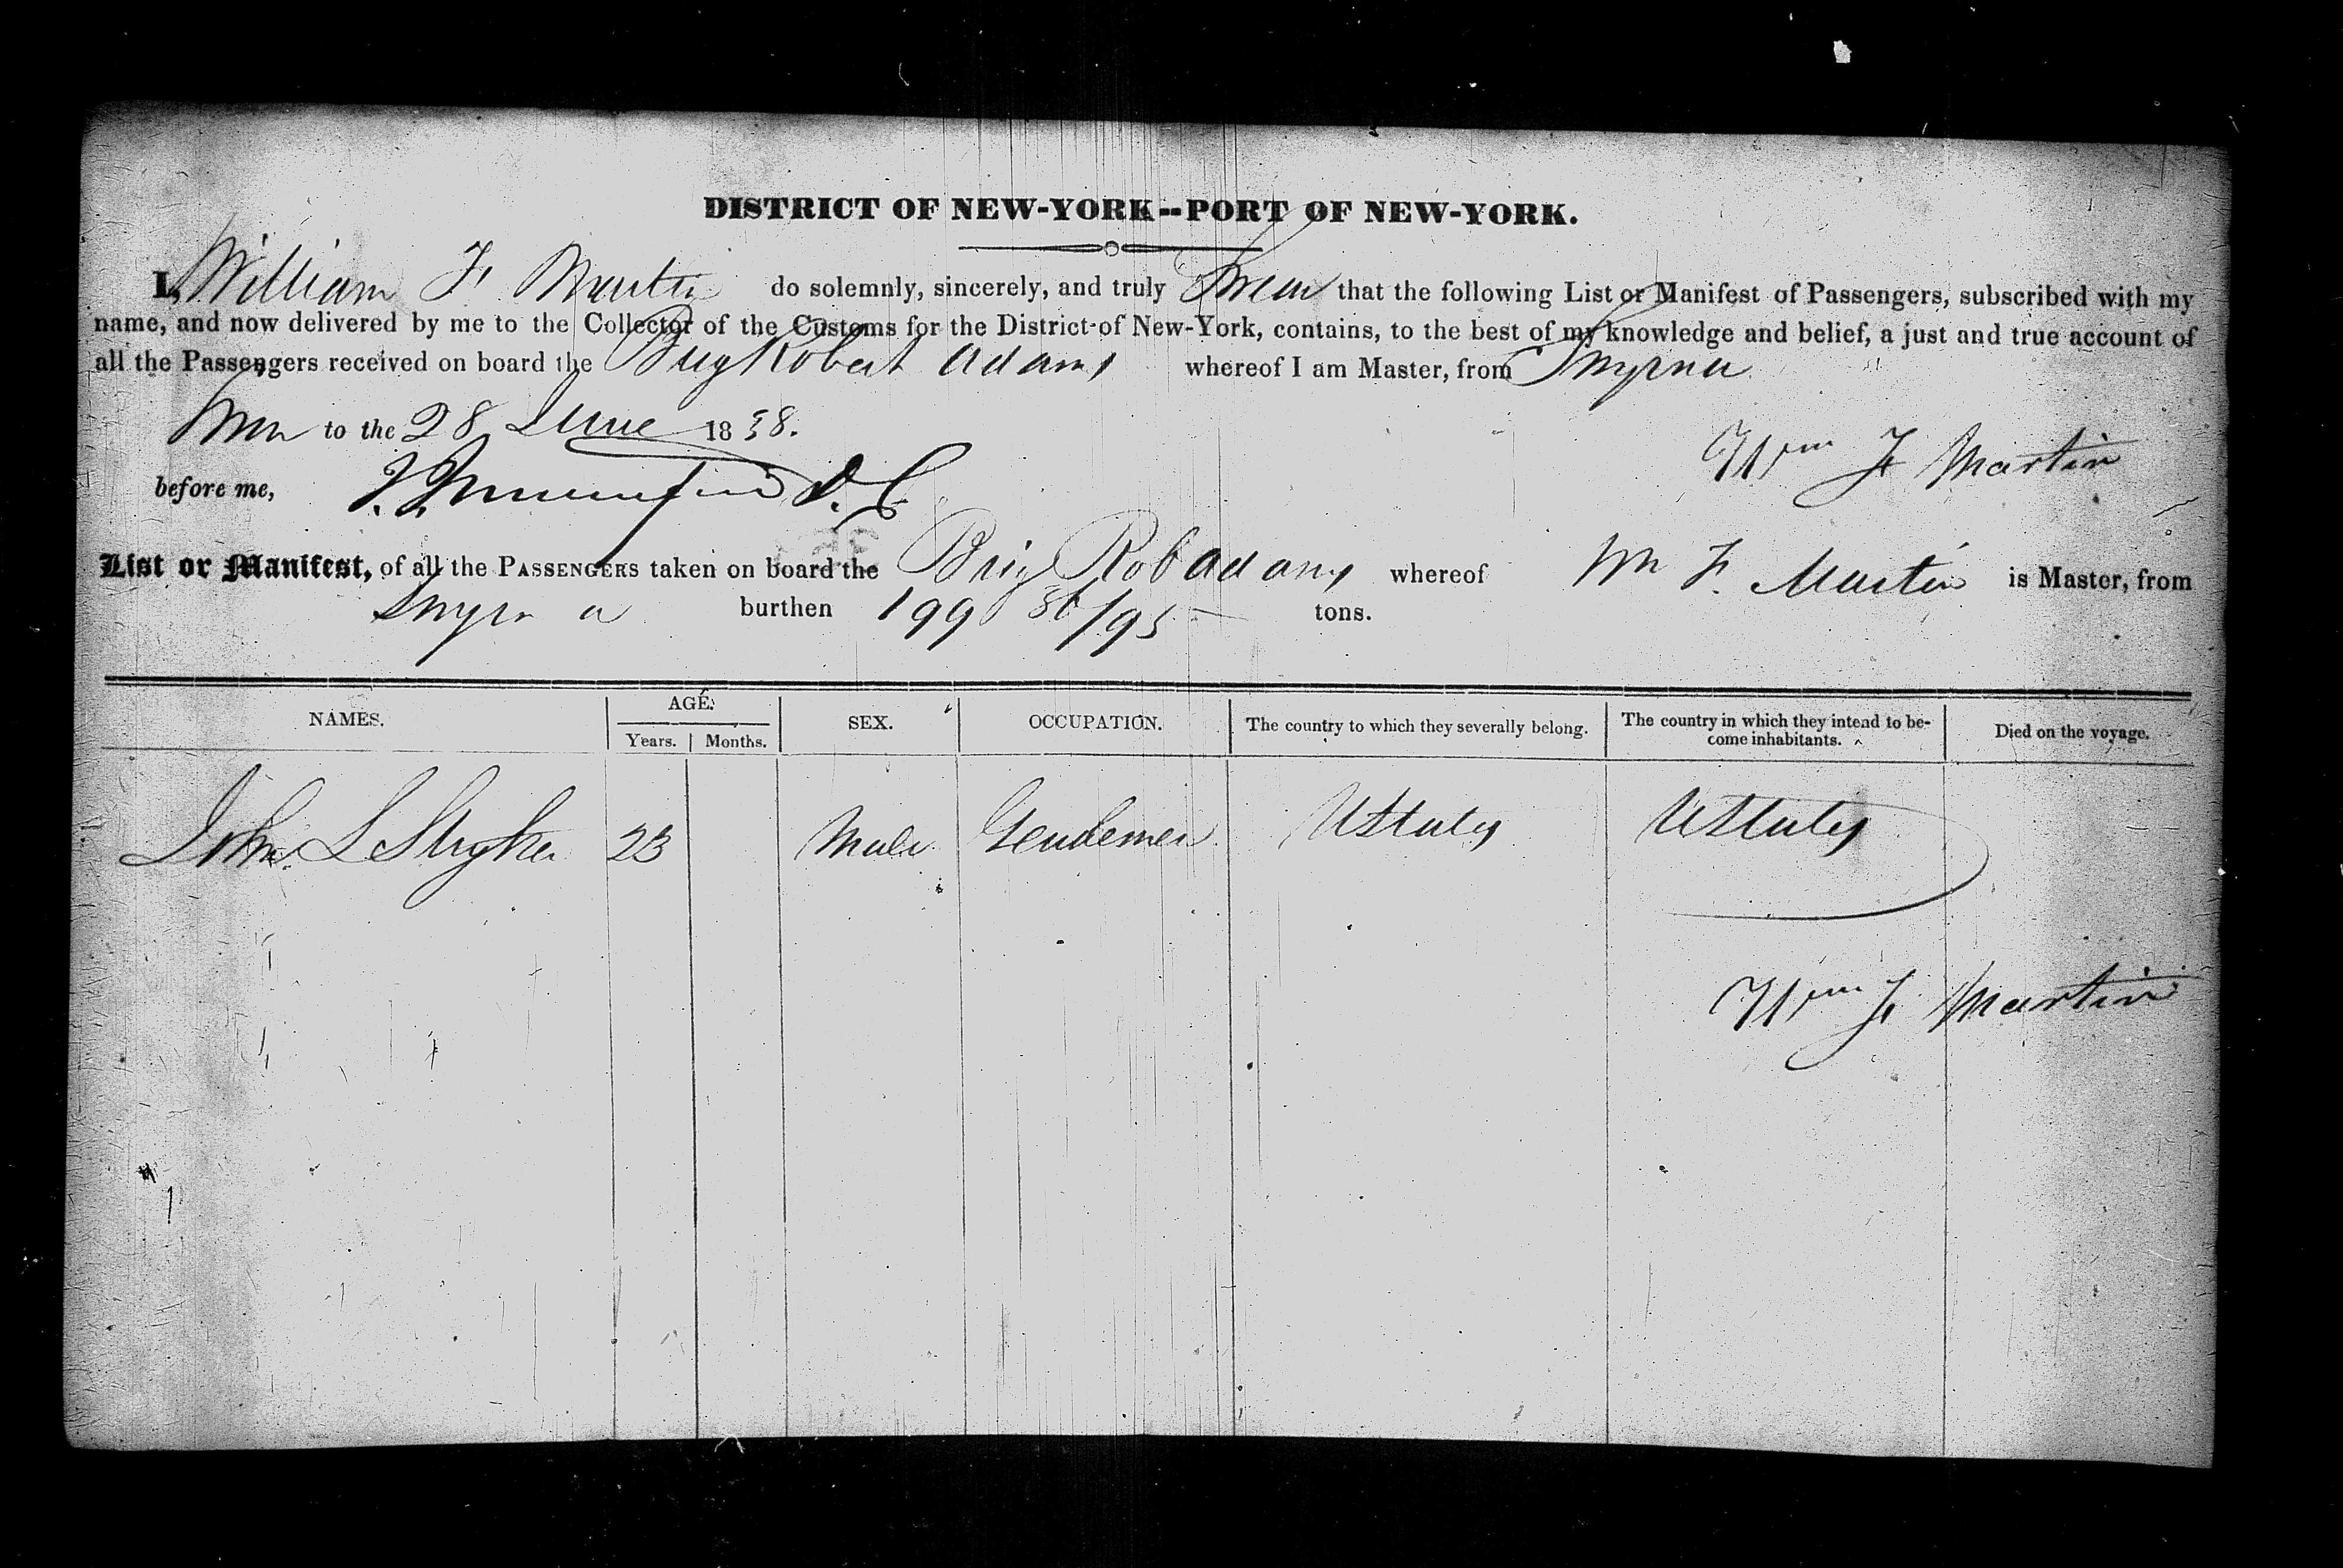 DISTRICT OF NEW-YORK--PORT OF NEW-YORK.
I, William F Martin do solemnly, sincerely, and truly Swear that the following List or Manifest of Passengers, subscribed with my
name, and now delivered by me to the Collector of the Customs for the District of New-York, contains, to the best of my knowledge and belief, a just and true account of
all the Passengers received on board the Brig Robert Adams whereof I am Master, from Smyrna
to the 28 June 1838.
Wm F Martin
before me, D. C.
List or Manifest, of all the PASSENGERS taken on board the Brig Rob Adams whereof Wm F. Martin is Master, from
Smyrna burthen 199 86/95 tons.
NAMES. AGE. SEX. OCCUPATION. The country to which they severally belong. The country in which they intend to be-
come inhabitants. Died on the voyage.
Years. Months.
John L Stryker 23 Male Gentlemen UStates UStates
Wm F Martin